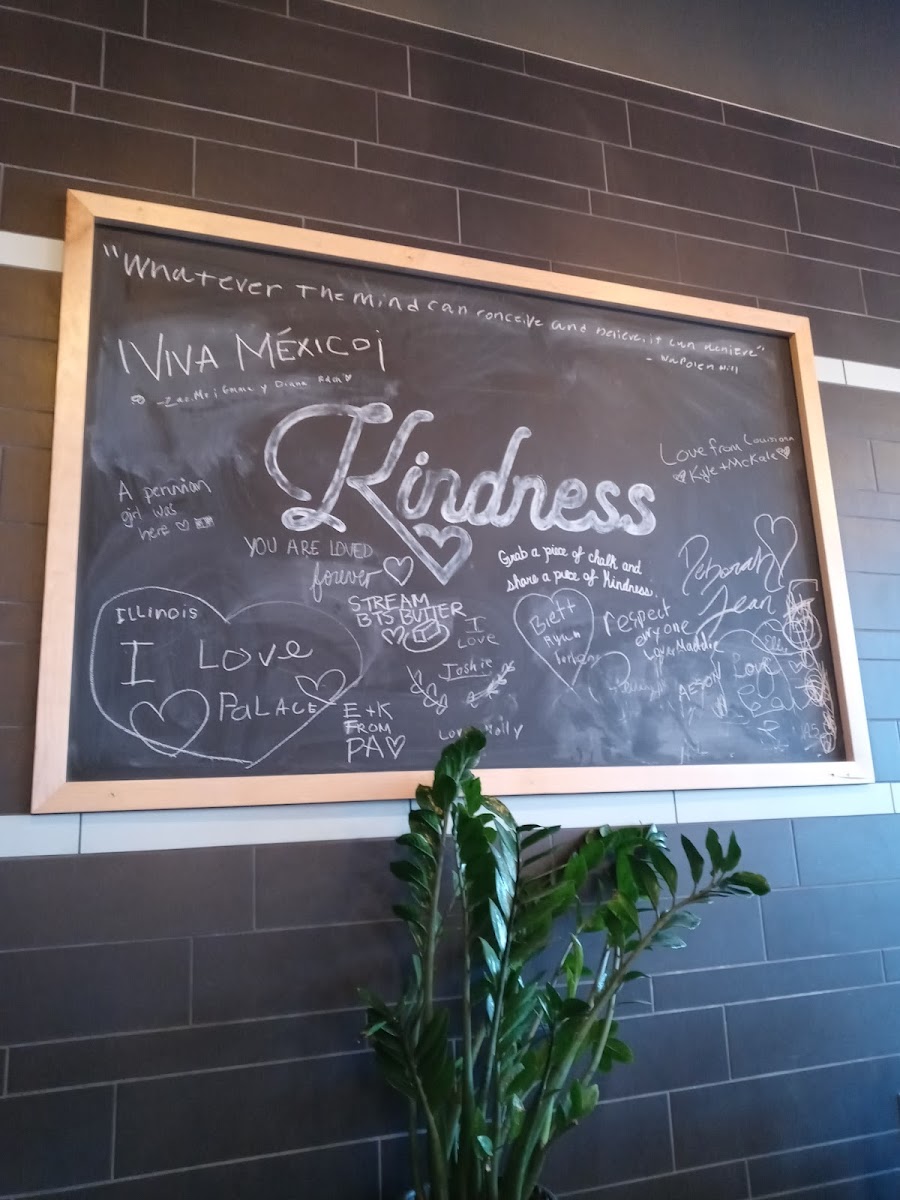 "Whatever The mind can conceive and believe, it can achieve"
- Napolen Hill
¡VIVA MÉXICO¡
Emma y Diana
Kindness
Love from Louisiana
Kyle + McKale
A peruvian
girl was
here
YOU ARE LOVED
forever
Grab a piece of chalk and
share a piece of Kindness.
Deborah
Jean
STREAM
BTS BUTTER
I
LOVE
Joshie
Brett
Ryan
respect
everyone
Love Maddie
ILLINOIS
I LOVE
PALACE
E+K
FROM
PA
Love Molly
Ellie
Love